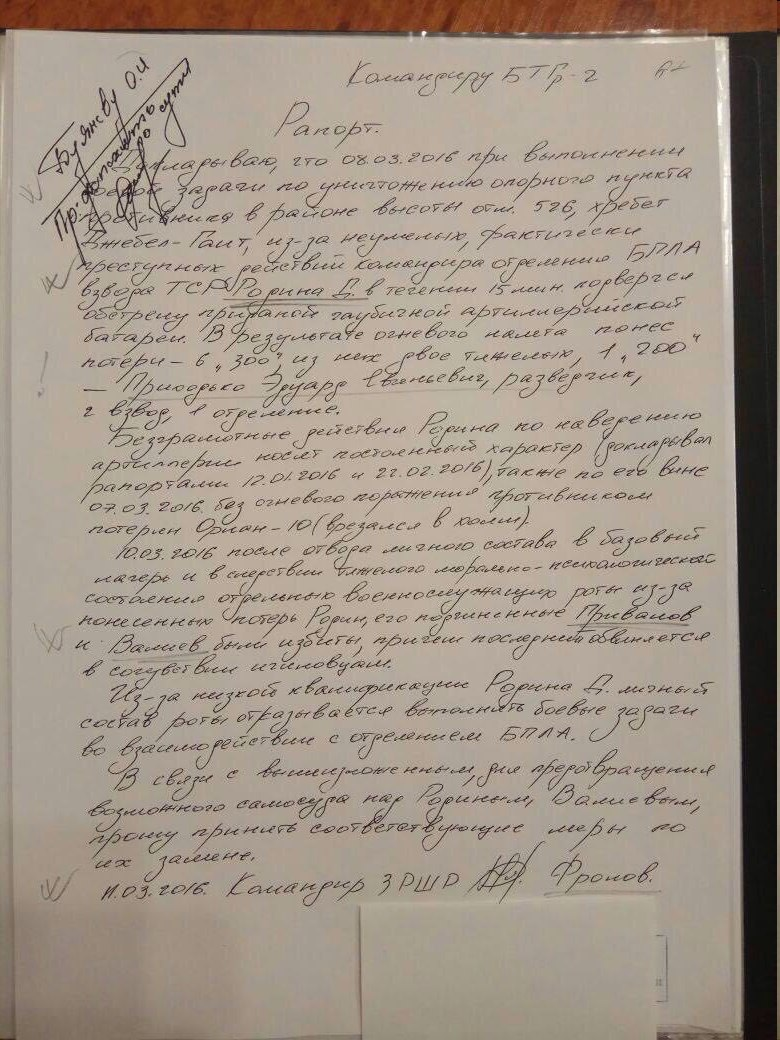 Командиру БТГр-2
Буянову О.И
Рапорт.
Докладываю, что 08.03.2016 при выполнении
боевой задачи по уничтожению опорного пункта
противника в районе высоты отм. 526, хребет
Джебел-Гант, из-за неумелых, фактически
преступных действий командира отделения БПЛА
взвода ТСР Родина Д. в течении 15 мин. подвергся
обстрелу приданой гаубичной артиллерийской
батареи. В результате огневого налета понес
потери – 6 „300", из них двое тяжелых, 1 „200"
– Приходько Эдуард Евгеньевич, разведчик,
2 взвод, 1 отделение.
Безграмотные действия Родина по наведению
артиллерии носят постоянный характер (докладывал
рапортами 12.01.2016 и 22.02.2016), также по его вине
07.03.2016. без огневого поражения противником
потерян Орлан-10 (врезался в холм).
10.03.2016 после отвода личного состава в базовый
лагерь и в следствии тяжелого морально-психологической
состояния отдельных военнослужащих роты из-за
понесенных потерь Родин, его подчиненные Привалов
и Валиев были избиты, причем последний обвиняется
в сочувствии игиловцам.
Из-за низкой квалификации Родина Д. личный
состав роты отказывается выполнять боевые задачи
во взаимодействии с отделением БПЛА.
В связи с вышеизложенным, для предотвращения
возможного самосуда над Родиным, Валиевым,
прошу принять соответствующие меры по
их замене.
11.03.2016. Командир 3 РШР Фролов.